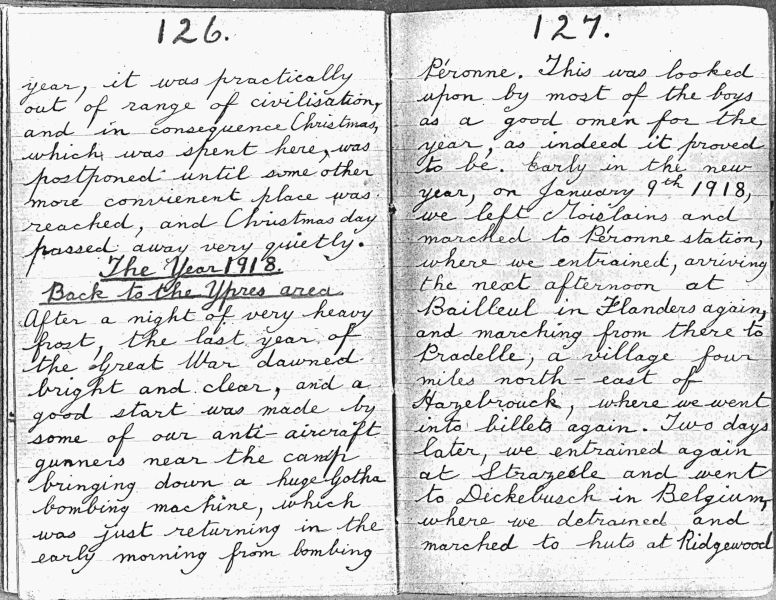 126.
year, it was practically
out of range of civilisation,
and in consequence Christmas,
which, was spent here, was
postponed until some other
more convienent place was
reached, and Christmas day
passed away very quietly.
The Year 1918.
Back to the Ypres area
After a night of very heavy
frost, the last year of
the Great War dawned
bright and clear, and a
good start was made by
some of our anti-aircraft
gunners near the camp
bringing down a huge Gotha
bombing machine, which
was just returning in the
early morning from bombing
127.
Péronne. This was looked
upon by most of the boys
as a good omen for the
year, as indeed it proved
to be. Early in the new
year, on January 9th 1918,
we left Moislains and
marched to Péronne station,
where we entrained, arriving
the next afternoon at
Bailleul in Flanders again,
and marching from there to
Pradelle, a village four
miles north-east of
Hazebrouck, where we went
into billets again. Two days
later, we entrained again
at Strazeele and went
to Dickebusch in Belgium,
where we detrained and
marched to huts at Ridgewood